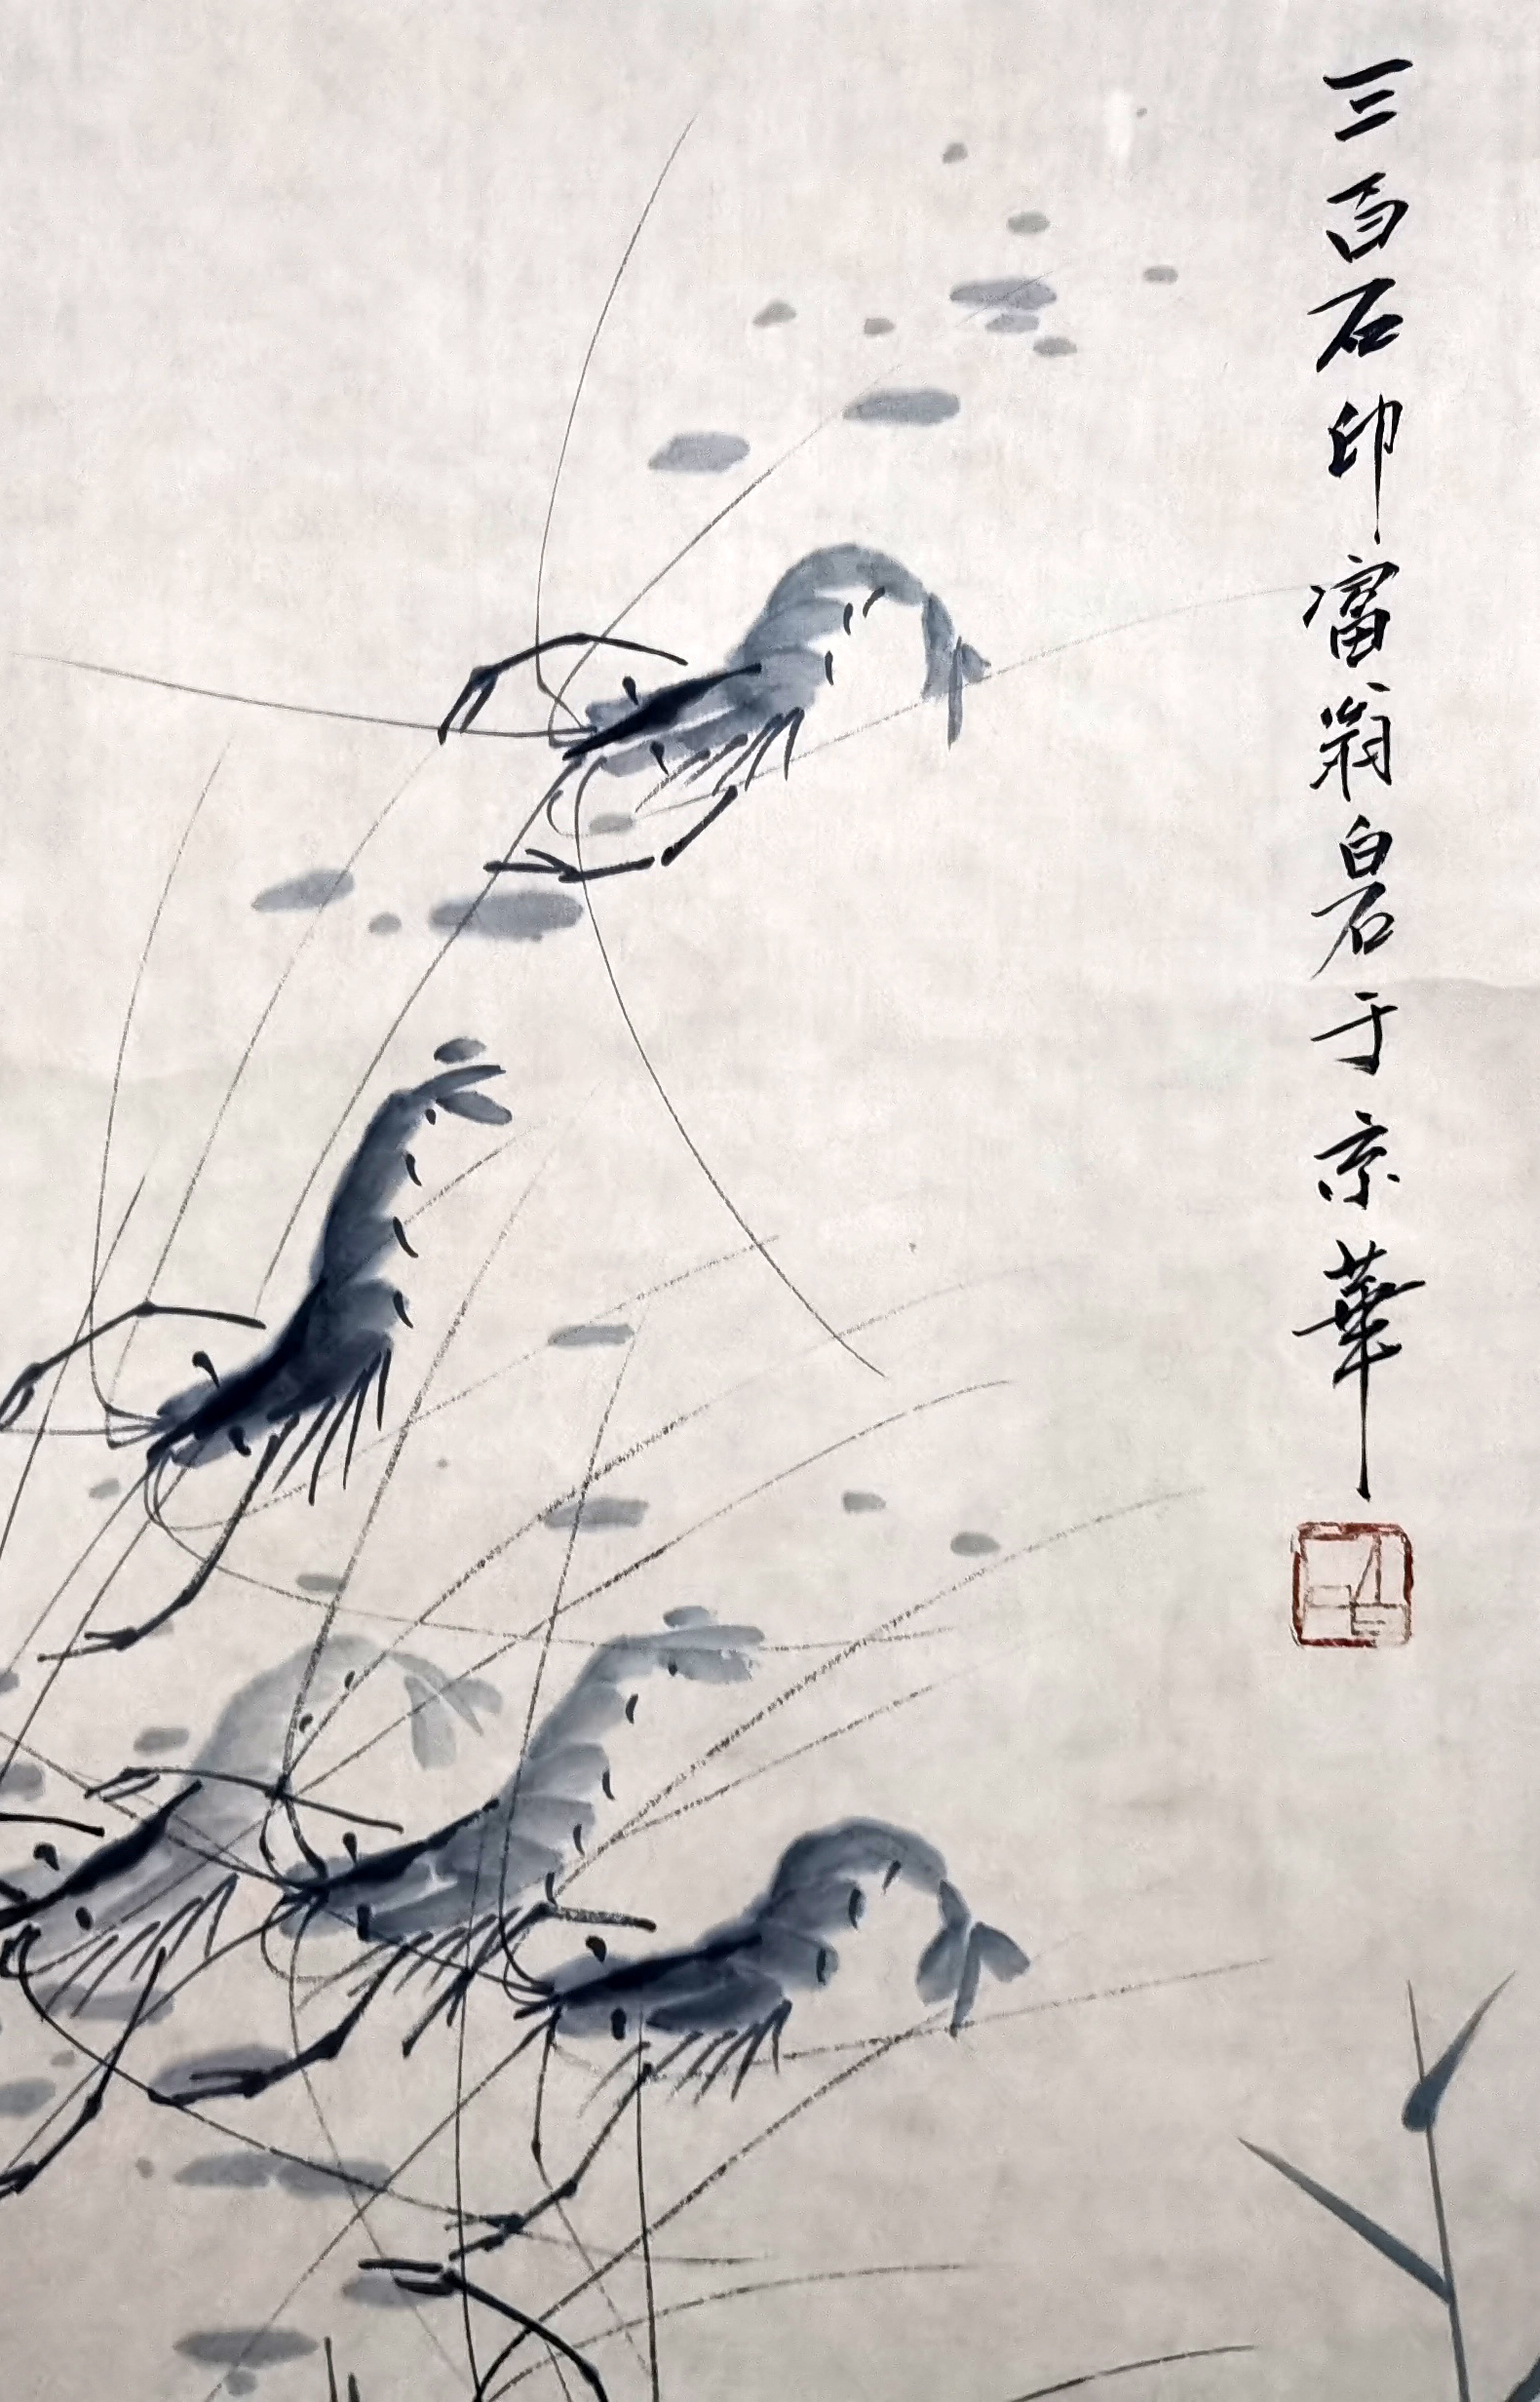 三百石印富翁白石于京華